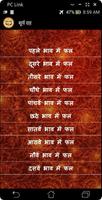 PC Link
सूर्य ग्रह
पहले भाव में फल
दूसरे भाव में फल
तीसरे भाव में फल
चौथे भाव में फल
पाचवे भाव में फल
छठवे भाव में फल
सातवे भाव में फल
आठवे भाव में फल
नौंवे भाव में फल
दसवे भाव में फल